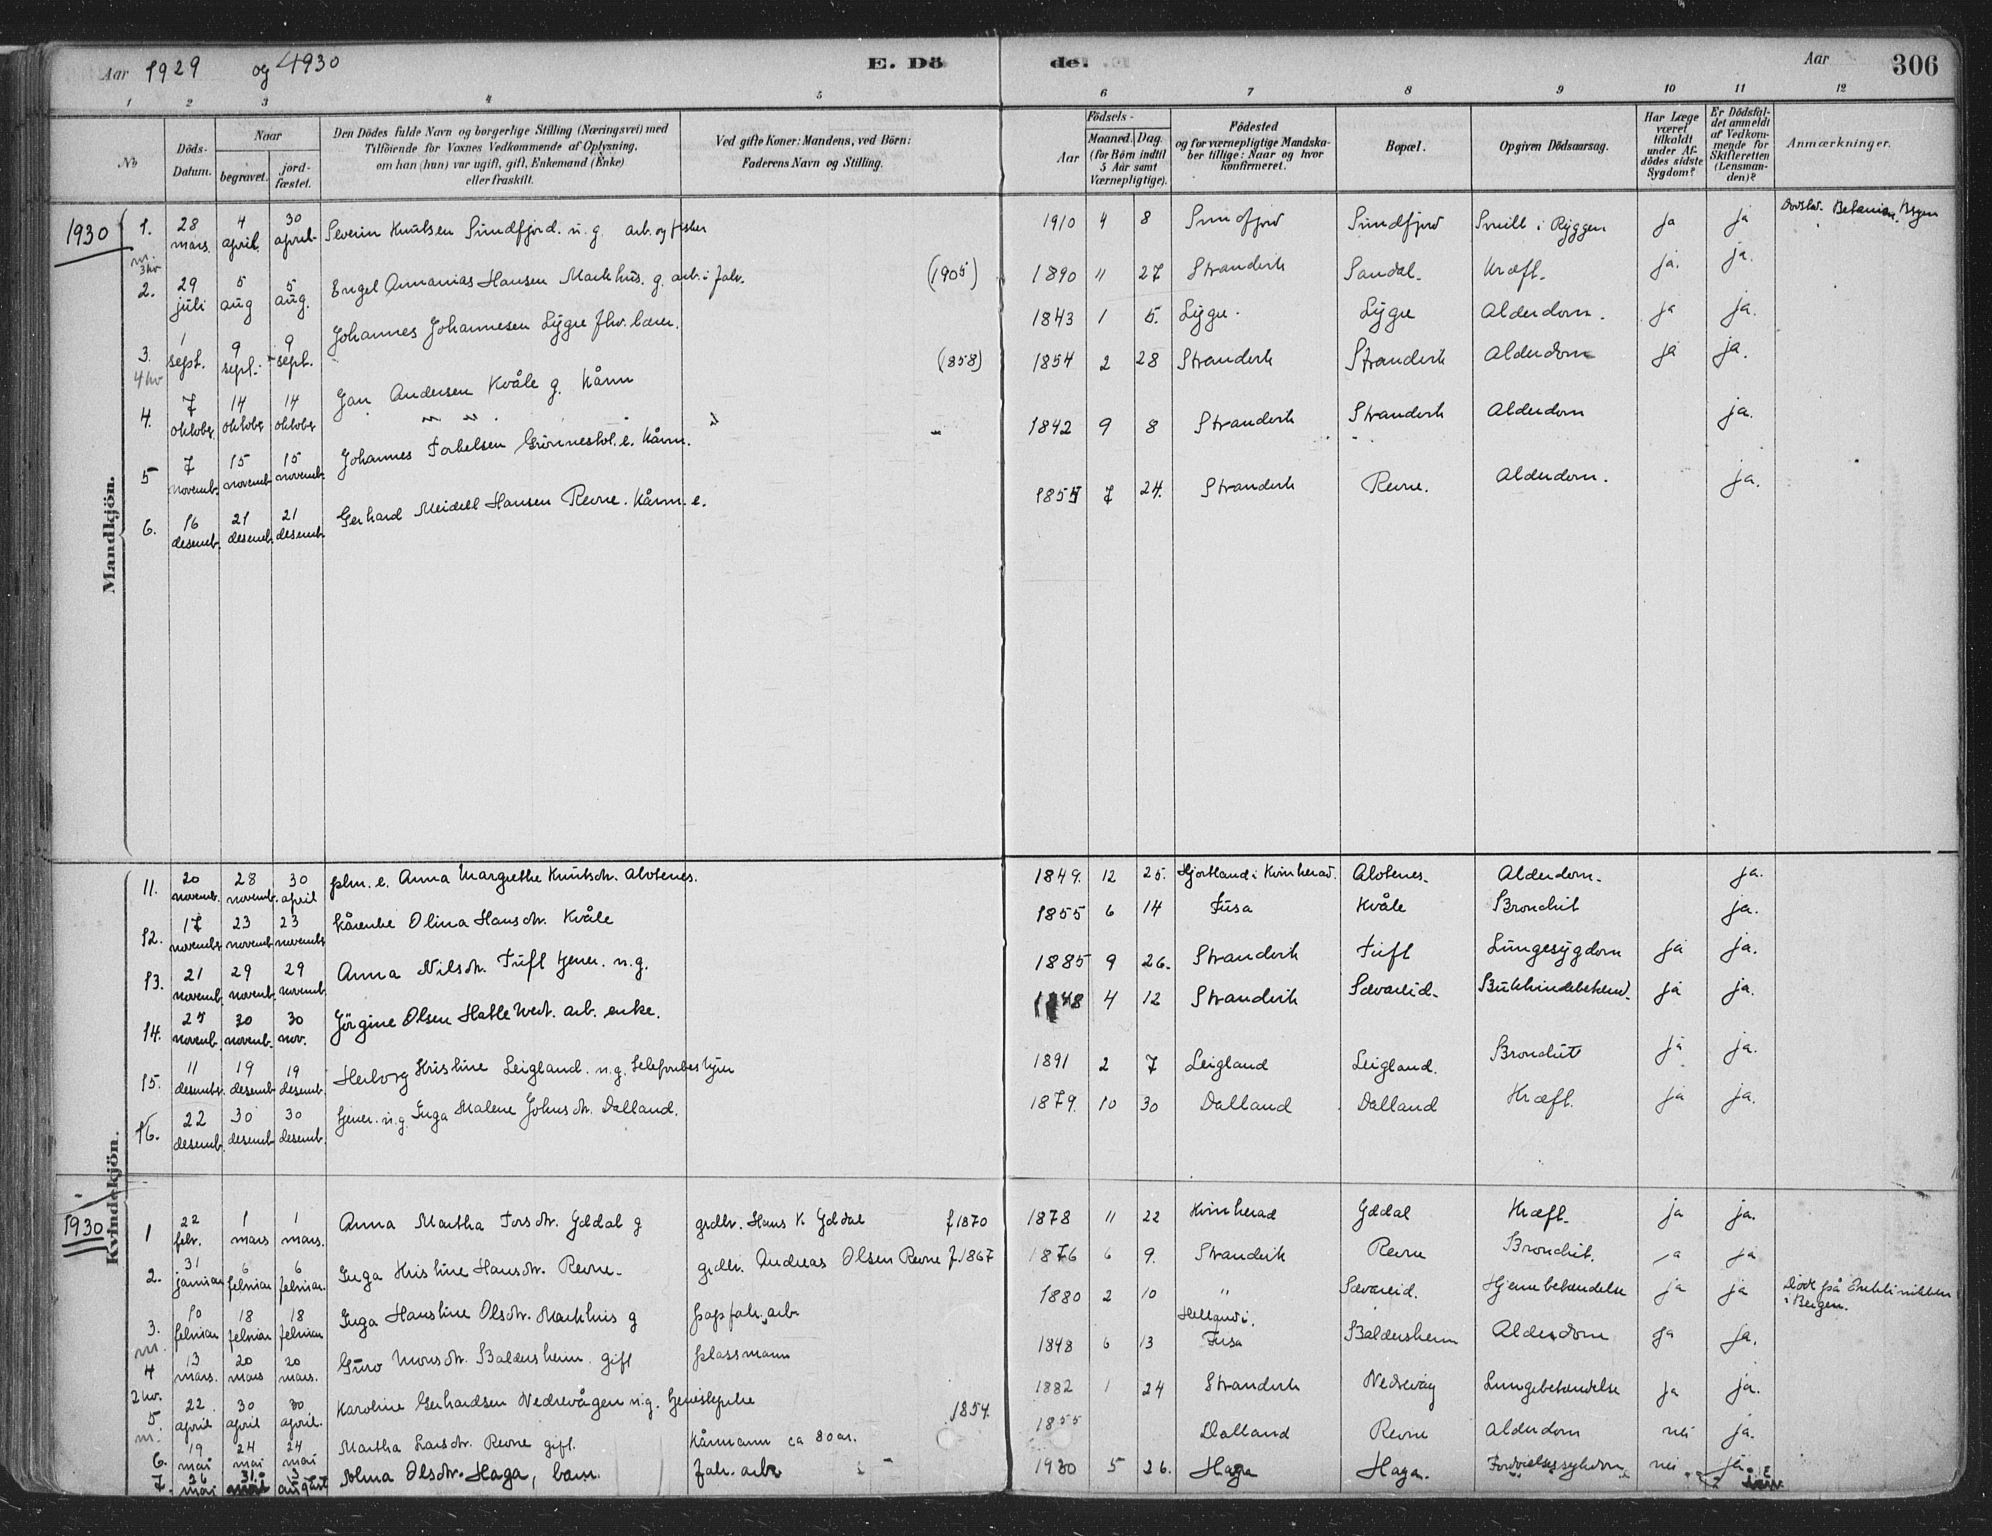 Aar 1929 og 1930 E. Dö de. Aar 306
1 2 3 4 5 6 7 8 9 10 11 12
No
Döds-Datum.
Naar begravet. jordfæstet.
Den Dödes fulde Navn og borgerlige Stilling (Næringsvei) med
Tilföiende for Voxnes Vedkommende af Oplysning,
om han (hun) var ugift, gift, Enkemand (Enke)
eller fraskilt.
Ved gifte Koner: Mandens, ved Börn:
Faderens Navn og Stilling.
Födsels-
Aar Maaned. Dag.
(for Börn indtil
5 Aar samt
Værnepligtige).
Födested
og for værnepligtige Mandska-
ber tillige: Naar og hvor
konfirmeret.
Bopæl.
Opgiven Dödsaarsag.
Har Læge
været
tilkaldt
under Af-
dödes sidste
Sygdom?
Er Dödsfal-
det anmeldt
af Vedkom-
mende for
Skifteretten
(Lensman-
den)?
Anmærkninger.
Mandkjön.
1930 1. 28 mars. 4 april. 30 april. Severin Knutsen Sundfjord. u. g. arb. og fisker 1910 4 8 Sundfjord Sundfjord ja ja Betanien. Bergen
2. 29 juli 5 aug 5 aug. Engel Annanias Hansen Markhus. g. arb. i fabr. (1905) 1890 11 27 Strandvik Sandal. Kræft. ja. ja.
3. 1 sept. 9 sept. 9 sept. Johannes Johannesen Lygre fhv. lærer. 1843 1 5. Lygre. Lygre Alderdom. ja ja.
4. 7 oktober 14 oktober 14 oktober Jan Andersen Kvåle g. kårm (1858) 1854 2 28 Strandvik Strandvik Alderdom ja ja.
5 7 novemb. 15 novemb. 15 novemb. Johannes Torkelsen Grönnevol. e. kårm. 1842 9 8 Strandvik Strandvik Alderdom ja.
6. 16 desemb. 21 desemb. 21 desemb. Gerhard Meidell Hansen Revne. Kårm. e. 1855 7 24. Strandvik Revne. Alderdom. ja.
Kvindekjön.
11. 20 novemb. 28 novemb. 30 april plm. e. Anna Margrethe Knutsdtr. Alvtenes. 1849. 12 25. Hjortland i Kvinherad. Alvtenes. Alderdom. ja.
12. 17 novemb. 23 novemb. 23 novemb. kårenke Olina Hansdtr. Kvåle 1855 6 14 Fusa Kvåle Bronchit ja.
13. 21 novemb. 29 novemb. 29 novemb. Anna Nilsdtr. Tuft tjener. u. g. 1885 9 26. Strandvik Tuft Lungesygdom ja ja.
14. 30 novemb. 30 nov. Jörgine Olsen Hatlevedt. arb. enke. 1848 4 12 Strandvik Sævareid. ja ja.
15. 11 desemb. 19 desemb. 19 desemb. Herborg Kristine Leigland. u. g. telefonbestyrer 1891 2 7 Leigland Leigland. Bronchit ja ja.
16. 22 desemb. 30 desemb. 30 desemb. tjener. u. g. Inga Malene Johnsdtr. Dalland. 1879. 10 30 Dalland Dalland Kræft. ja ja.
1930 1 22 febr. 1 mars 1 mars. Anna Martha Torsdtr. Yddal g grdbr. Hans K Yddal f 1870 1878 11 22 Kvinherad Yddal Kræft. ja ja.
2. 31 januar 6 februar 6 februar. Inga Kristine Hansdtr. Revne. grdbr. Andreas Olsen Revne f. 1867 1876 6 9. Strandvik Revne Bronchit. ja ja
3. 10 februar 18 februar 18 februar Inga Hanstine Olsdtr. Markhus g papfabr. arb 1880 2 10 " Sævareid. Hjernebetændelse ja ja Död på i Bergen.
4 13 mars. 20 mars 20 mars. Guro Monsdtr. Baldersheim. gift plassmann 1848 6 13 Helland i Fusa Baldersheim Alderdom ja ja.
5. 22 april 30 april 30 april. Karoline Gerhardsen Nedrevågen u. g. 1882 1 24 Strandvik Nedrevåg Lungebetændelse ja ja.
6. 19 mai 24 mai 24 mai Martha Larsdtr. Revne gift. Kårmann ca 80 år. 1854. 1855 Dalland Revne Alderdom nei ja.
7. 26 mai 31. mai 3 august Alma Olsdtr. Haga, barn. fabr. arb. 1930 5 26. Haga Haga. nei ja.